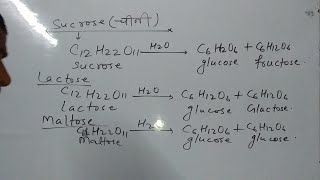 Sucrose (चीनी)
↓
C12H22O11 —H2O→ C6H12O6 + C6H12O6
sucrose glucose fructose
Lactose
C12H22O11 —H2O→ C6H12O6 + C6H12O6
Lactose glucose Glactose.
Maltose
H22O11 —H2→ C6H12O6 + C6H12O6
Maltose glucose glucose.